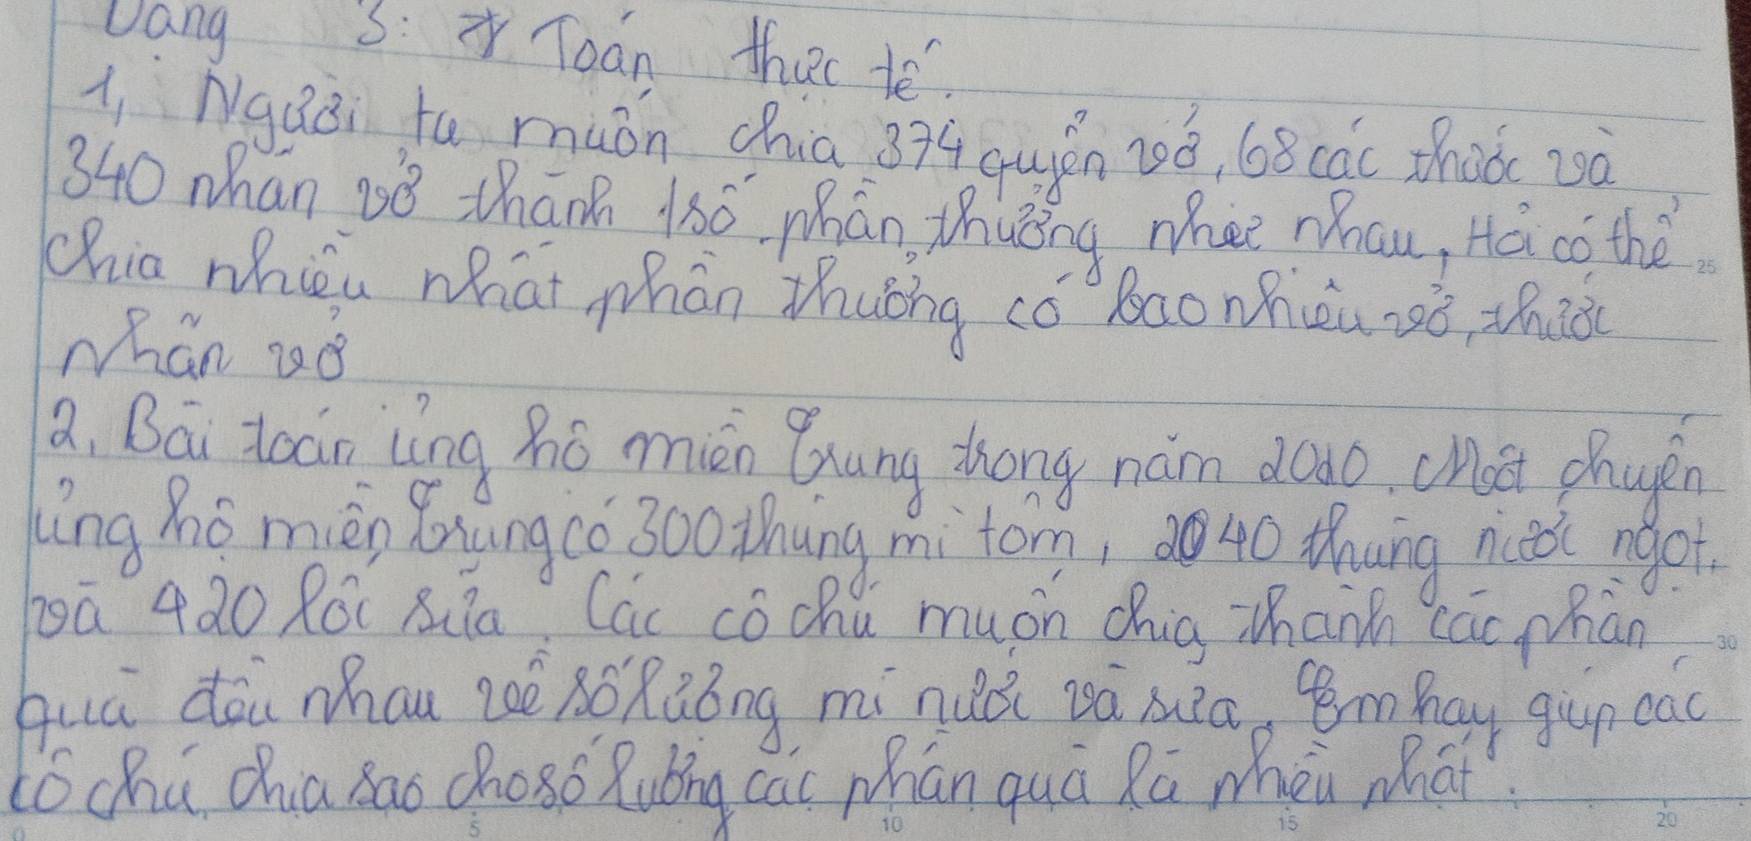 Dạng 3: Toán thực tế.
1, Người ta muốn chia 374 quyển vở, 68 các thước và
340 nhãn vở thành 1 số phần thưởng như nhau, Hỏi có thể
chia nhiều nhất phần thưởng có bao nhiêu vở, thước
nhãn vở
2. Bài toán ủng hộ miền Trung trong năm 2020. Một chuyến
ủng hộ miền Trung có 300 thùng mì tôm, 2040 thùng nước ngọt.
và 420 lốc sữa. Các cô chú muốn chia thành các phần
quà đều nhau về số lượng mì nước và sữa. Em hãy giúp các
cô chú chia sao cho số lượng các phần quà là nhiều nhất.
25
30
0 5 10 15 20